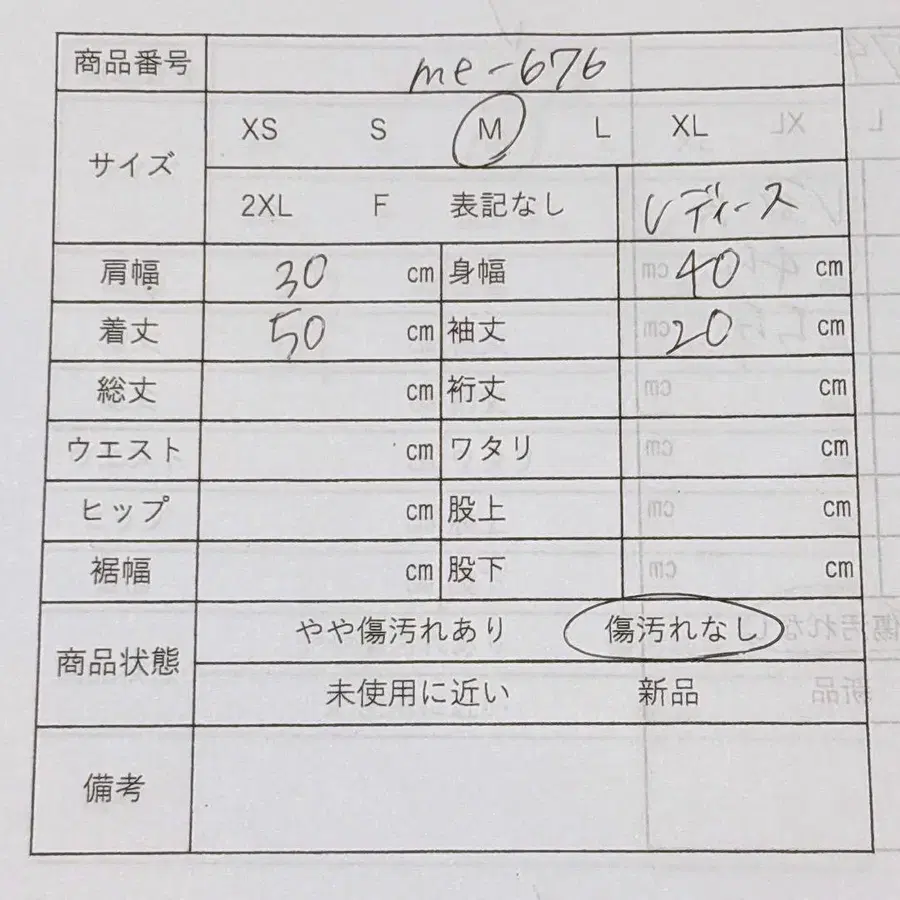 商品番号 me-676
サイズ XS S M L XL
2XL F 表記なし レディース
肩幅 30 cm 身幅 40 cm
着丈 50 cm 袖丈 20 cm
総丈 cm 裄丈 cm
ウエスト cm ワタリ cm
ヒップ cm 股上 cm
裾幅 cm 股下 cm
商品状態 やや傷汚れあり 傷汚れなし
未使用に近い 新品
備考